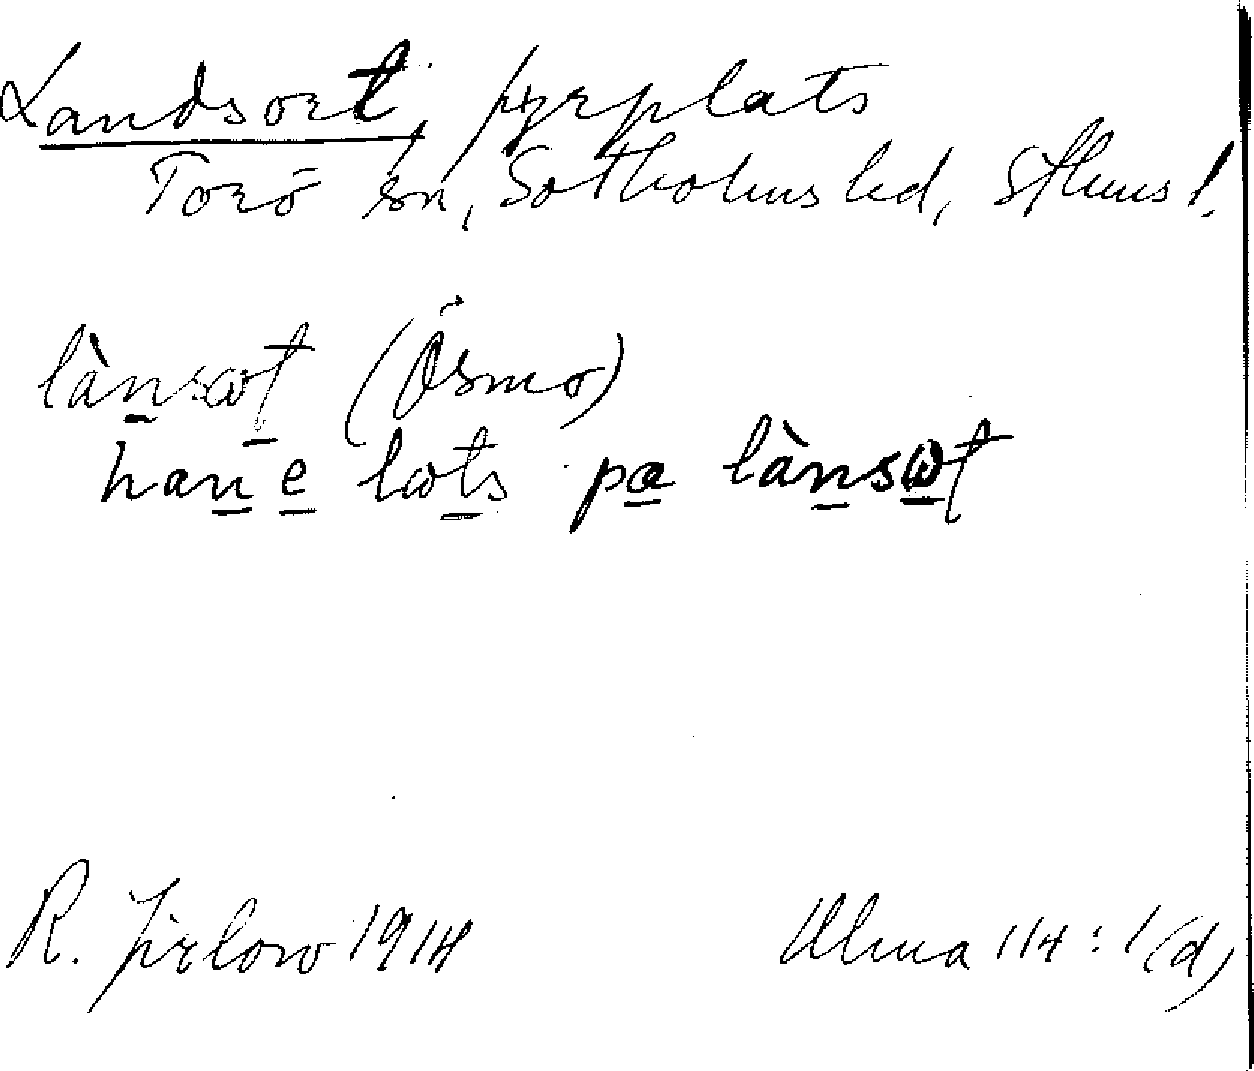 Landsort, fyrplats
Torö sn, Sotholms hd, Sthms l.
lànsωt (Ösmo)
han e lωts pa lànsωt
R. Jirlow 1914
Ulma 114:1(d)